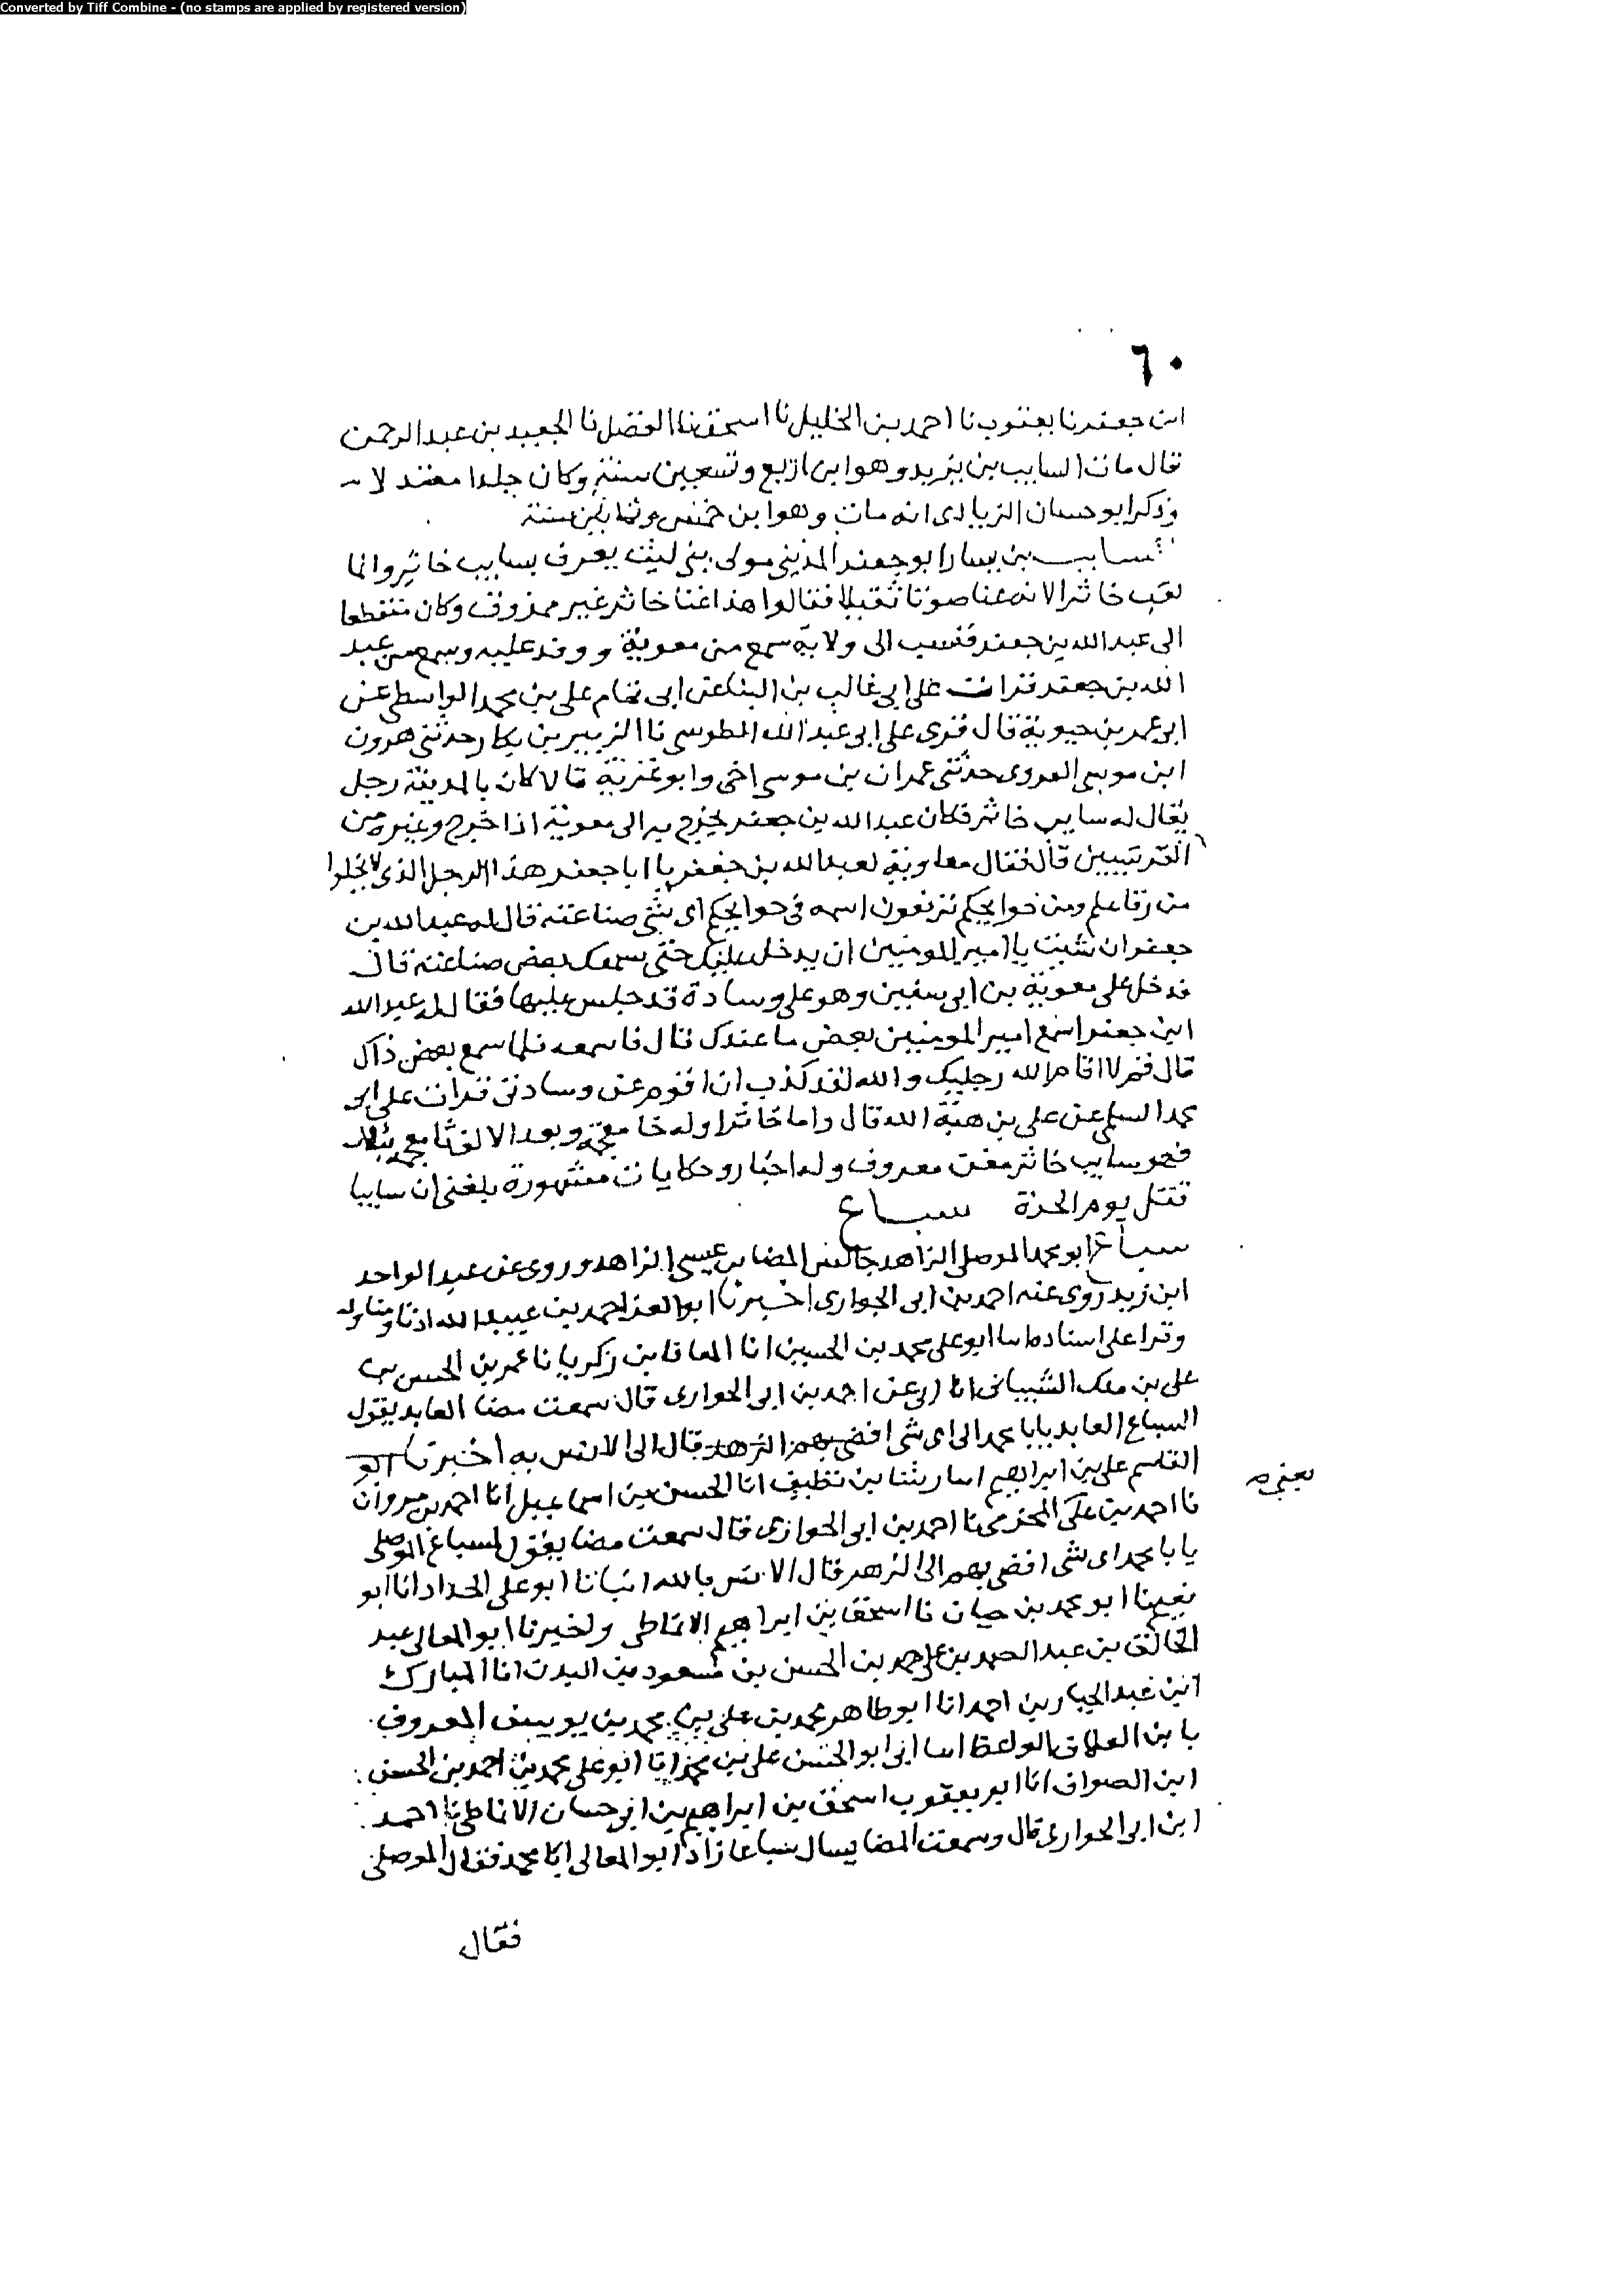 Converted by Tiff Combine - (no stamps are applied by registered version)
٦٠
ابن جعفر نا يعقوب نا احمد بن الخليل نا اسحق نا الفضل نا الجعيد بن عبد الرحمن
قال مات السايب بن يزيد وهو ابن اربع وتسعين سنة وكان جلدا معتدلا
وذكر ابو حسان الزيادى انه مات وهو ابن خمس وثمانين سنة
سايب بن يسار ابو جعفر المدينى مولى بنى ليث يعرف بسايب خاثر وانما
لقب خاثرا لانه غنا صوتا ثقيلا فقالوا هذا غنا خاثر غير ممذوق وكان منقطعا
الى عبد الله بن جعفر فنسب الى ولايه سمع من معوية ووفد عليه وسمع من عبد
الله بن جعفر قرات على ابى غالب بن البنا عن ابى تمام على بن محمد الواسطى عن
ابى عمر بن حيوية قال قرى على ابى عبد الله الطوسى نا الزبير بن بكار حدثنى هرون
ابن موسى الفروى حدثنى عمران بن موسى اخى وابو غزية قالا كان بالمدينة رجل
يقال له سايب خاثر فكان عبد الله بن جعفر يخرج به الى معوية اذا خرج وغيره من
القرشيين قال فقال معاوية لعبد الله بن جعفر يا ابا جعفر هذا الرجل الذى لا تخلوا
من رقاعكم ومن حوايجكم ترفعون اسمه فى حوايجكم اى شى صناعته قال له عبد الله بن
جعفر ان شيت يا امير المومنين ان يدخل عليك حتى يسمعك بعض صناعته قال
فدخل على معوية بن ابى سفين وهو على وسادة قد جلس عليها فقال له عبد الله
ابن جعفر اسمع امير المومنين بعض ما عندك قال فاسمعه فلما سمع بعض ذاك
قال قم لا اقام الله رجليك والله لقد كدت ان اقوم عن وسادتى قرات على ابى
محمد السلمى عن على بن هبة الله قال واما خاثر اوله خا معجمة وبعد الالف ثا معجمة بثلاث
فهو سايب خاثر مغن معروف وله اخبار وحكايات مشهورة بلغنى ان سايبا
قتل يوم الحرة سباع
سباع ابو محمد الموصلى الزاهد جالس المضا بن عيسى الزاهد وروى عن عبد الواحد
ابن زيد روى عنه احمد بن ابى الحوارى اخبرنا ابو العز احمد بن عبيد الله اذنا ومناولة
وقرا على اسناده انا ابو على محمد بن الحسين انا المعافا بن زكريا نا عمر بن الحسن بن
على بن ملك الشيبانى انا ابى عن احمد بن ابى الحوارى قال سمعت مضا العابد يقول
السباع العابد يابا محمد الى اى شى افضى بهم الزهد قال الى الانس به اخبرنا ابو
القاسم على بن ابراهيم انا رشا بن نظيف انا الحسن بن اسماعيل انا احمد بن مروان
يعنى
نا احمد بن على المخزمى نا احمد بن ابى الحوارى قال سمعت مضا يقول لسباع الموصلى
يا با محمد اى شى افضى بهم الى الزهد قال الانس بالله انبانا ابو على الحداد انا ابو
نعيم نا ابو محمد بن حيان نا اسحق بن ابراهيم الانماطى واخبرنا ابو المعالى عبد
الخالق بن عبد الصمد بن على احمد بن الحسن بن مسعود بن البدن انا المبارك
ابن عبد الجبار بن احمد انا ابو طاهر محمد بن على بن محمد بن يوسف المعروف
بابن العلاف الواعظ انا ابى ابو الحسن على بن محمد انا ابو على محمد بن احمد بن الحسن
ابن الصواف انا ابو يعقوب اسحق بن ابراهيم بن ابى حسان الانماطى نا احمد
ابن ابى الحوارى قال وسمعت المضا يسال سباعا زاد ابو المعالى ابا محمد فقال الموصلى
فقال